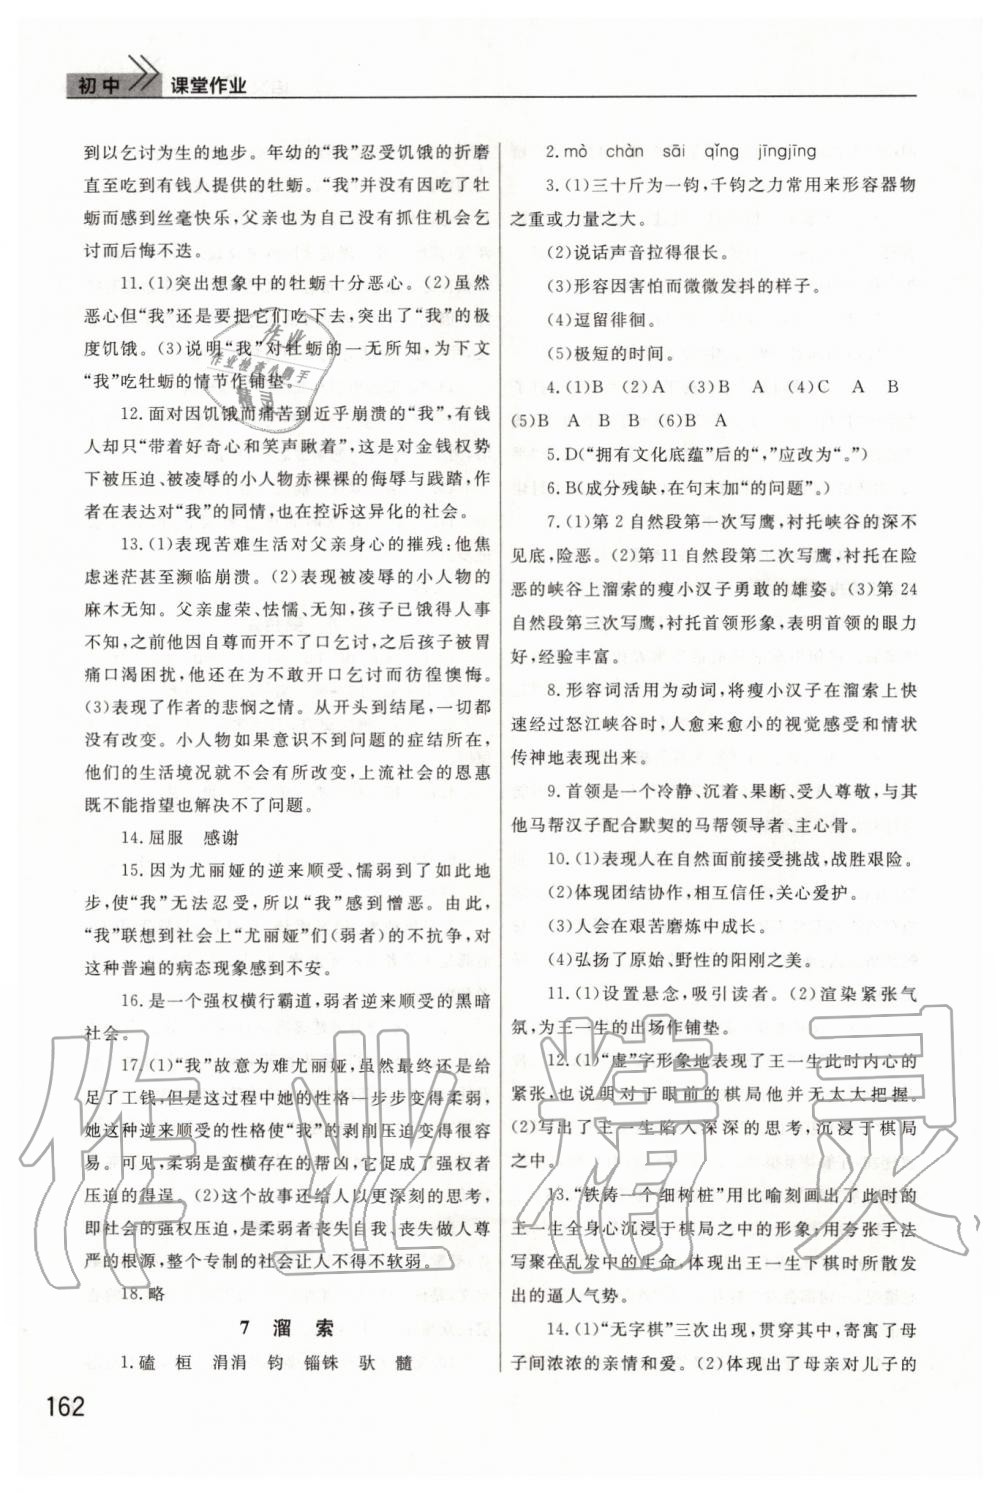 初中
课堂作业
到以乞讨为生的地步。年幼的“我”忍受饥饿的折磨
直至吃到有钱人提供的牡蛎。“我”并没有因吃了牡
蛎而感到丝毫快乐，父亲也为自己没有抓住机会乞
讨而后悔不迭。
11.(1)突出想象中的牡蛎十分恶心。(2)虽然
恶心但“我”还是要把它们吃下去，突出了“我”的极
度饥饿。(3)说明“我”对牡蛎的一无所知，为下文
“我”吃牡蛎的情节作铺垫。
12.面对因饥饿而痛苦到近乎崩溃的“我”，有钱
人却只“带着好奇心和笑声瞅着”，这是对金钱权势
下被压迫、被凌辱的小人物赤裸裸的侮辱与践踏，作
者在表达对“我”的同情，也在控诉这异化的社会。
13.(1)表现苦难生活对父亲身心的摧残：他焦
虑迷茫甚至濒临崩溃。(2)表现被凌辱的小人物的
麻木无知。父亲虚荣、怯懦、无知，孩子已饿得人事
不知，之前他因自尊而开不了口乞讨，之后孩子被胃
痛口渴困扰，他还在为不敢开口乞讨而彷徨懊悔。
(3)表现了作者的悲悯之情。从开头到结尾，一切都
没有改变。小人物如果意识不到问题的症结所在，
他们的生活境况就不会有所改变，上流社会的恩惠
既不能指望也解决不了问题。
14.屈服　感谢
15.因为尤丽娅的逆来顺受、懦弱到了如此地
步，使“我”无法忍受，所以“我”感到憎恶。由此，
“我”联想到社会上“尤丽娅”们(弱者)的不抗争，对
这种普遍的病态现象感到不安。
16.是一个强权横行霸道，弱者逆来顺受的黑暗
社会。
17.(1)“我”故意为难尤丽娅，虽然最终还是给
足了工钱，但是这过程中她的性格一步步变得柔弱，
她这种逆来顺受的性格使“我”的剥削压迫变得很容
易。可见，柔弱是蛮横存在的帮凶，它促成了强权者
压迫的得逞。(2)这个故事还给人以更深刻的思考，
即社会的强权压迫，是柔弱者丧失自我、丧失做人尊
严的根源，整个专制的社会让人不得不软弱。
18.略
7　溜　索
1.磕　桓　涓涓　钧　锱铢　驮　髓
2.mò　chàn　sāi　qǐng　jīngjīng
3.(1)三十斤为一钧，千钧之力常用来形容器物
之重或力量之大。
(2)说话声音拉得很长。
(3)形容因害怕而微微发抖的样子。
(4)逗留徘徊。
(5)极短的时间。
4.(1)B　(2)A　(3)B　A　(4)C　A　B
(5)B　A　B　B　(6)B　A
5.D(“拥有文化底蕴”后的“，”应改为“。”)
6.B(成分残缺，在句末加“的问题”。)
7.(1)第 2 自然段第一次写鹰，衬托峡谷的深不
见底，险恶。(2)第 11 自然段第二次写鹰，衬托在险
恶的峡谷上溜索的瘦小汉子勇敢的雄姿。(3)第 24
自然段第三次写鹰，衬托首领形象，表明首领的眼力
好，经验丰富。
8.形容词活用为动词，将瘦小汉子在溜索上快
速经过怒江峡谷时，人愈来愈小的视觉感受和情状
传神地表现出来。
9.首领是一个冷静、沉着、果断、受人尊敬，与其
他马帮汉子配合默契的马帮领导者、主心骨。
10.(1)表现人在自然面前接受挑战，战胜艰险。
(2)体现团结协作，相互信任，关心爱护。
(3)人会在艰苦磨炼中成长。
(4)弘扬了原始、野性的阳刚之美。
11.(1)设置悬念，吸引读者。(2)渲染紧张气
氛，为王一生的出场作铺垫。
12.(1)“虚”字形象地表现了王一生此时内心的
紧张，也说明对于眼前的棋局他并无太大把握。
(2)写出了王一生陷入深深的思考，沉浸于棋局
之中。
13.“铁铸一个细树桩”用比喻刻画出了此时的
王一生全身心沉浸于棋局之中的形象；用夸张手法
写聚在乱发中的生命，体现出王一生下棋时所散发
出的逼人气势。
14.(1)“无字棋”三次出现，贯穿其中，寄寓了母
子间浓浓的亲情和爱。(2)体现出了母亲对儿子的
162
作业
作业检查小帮手
精灵
作业精灵